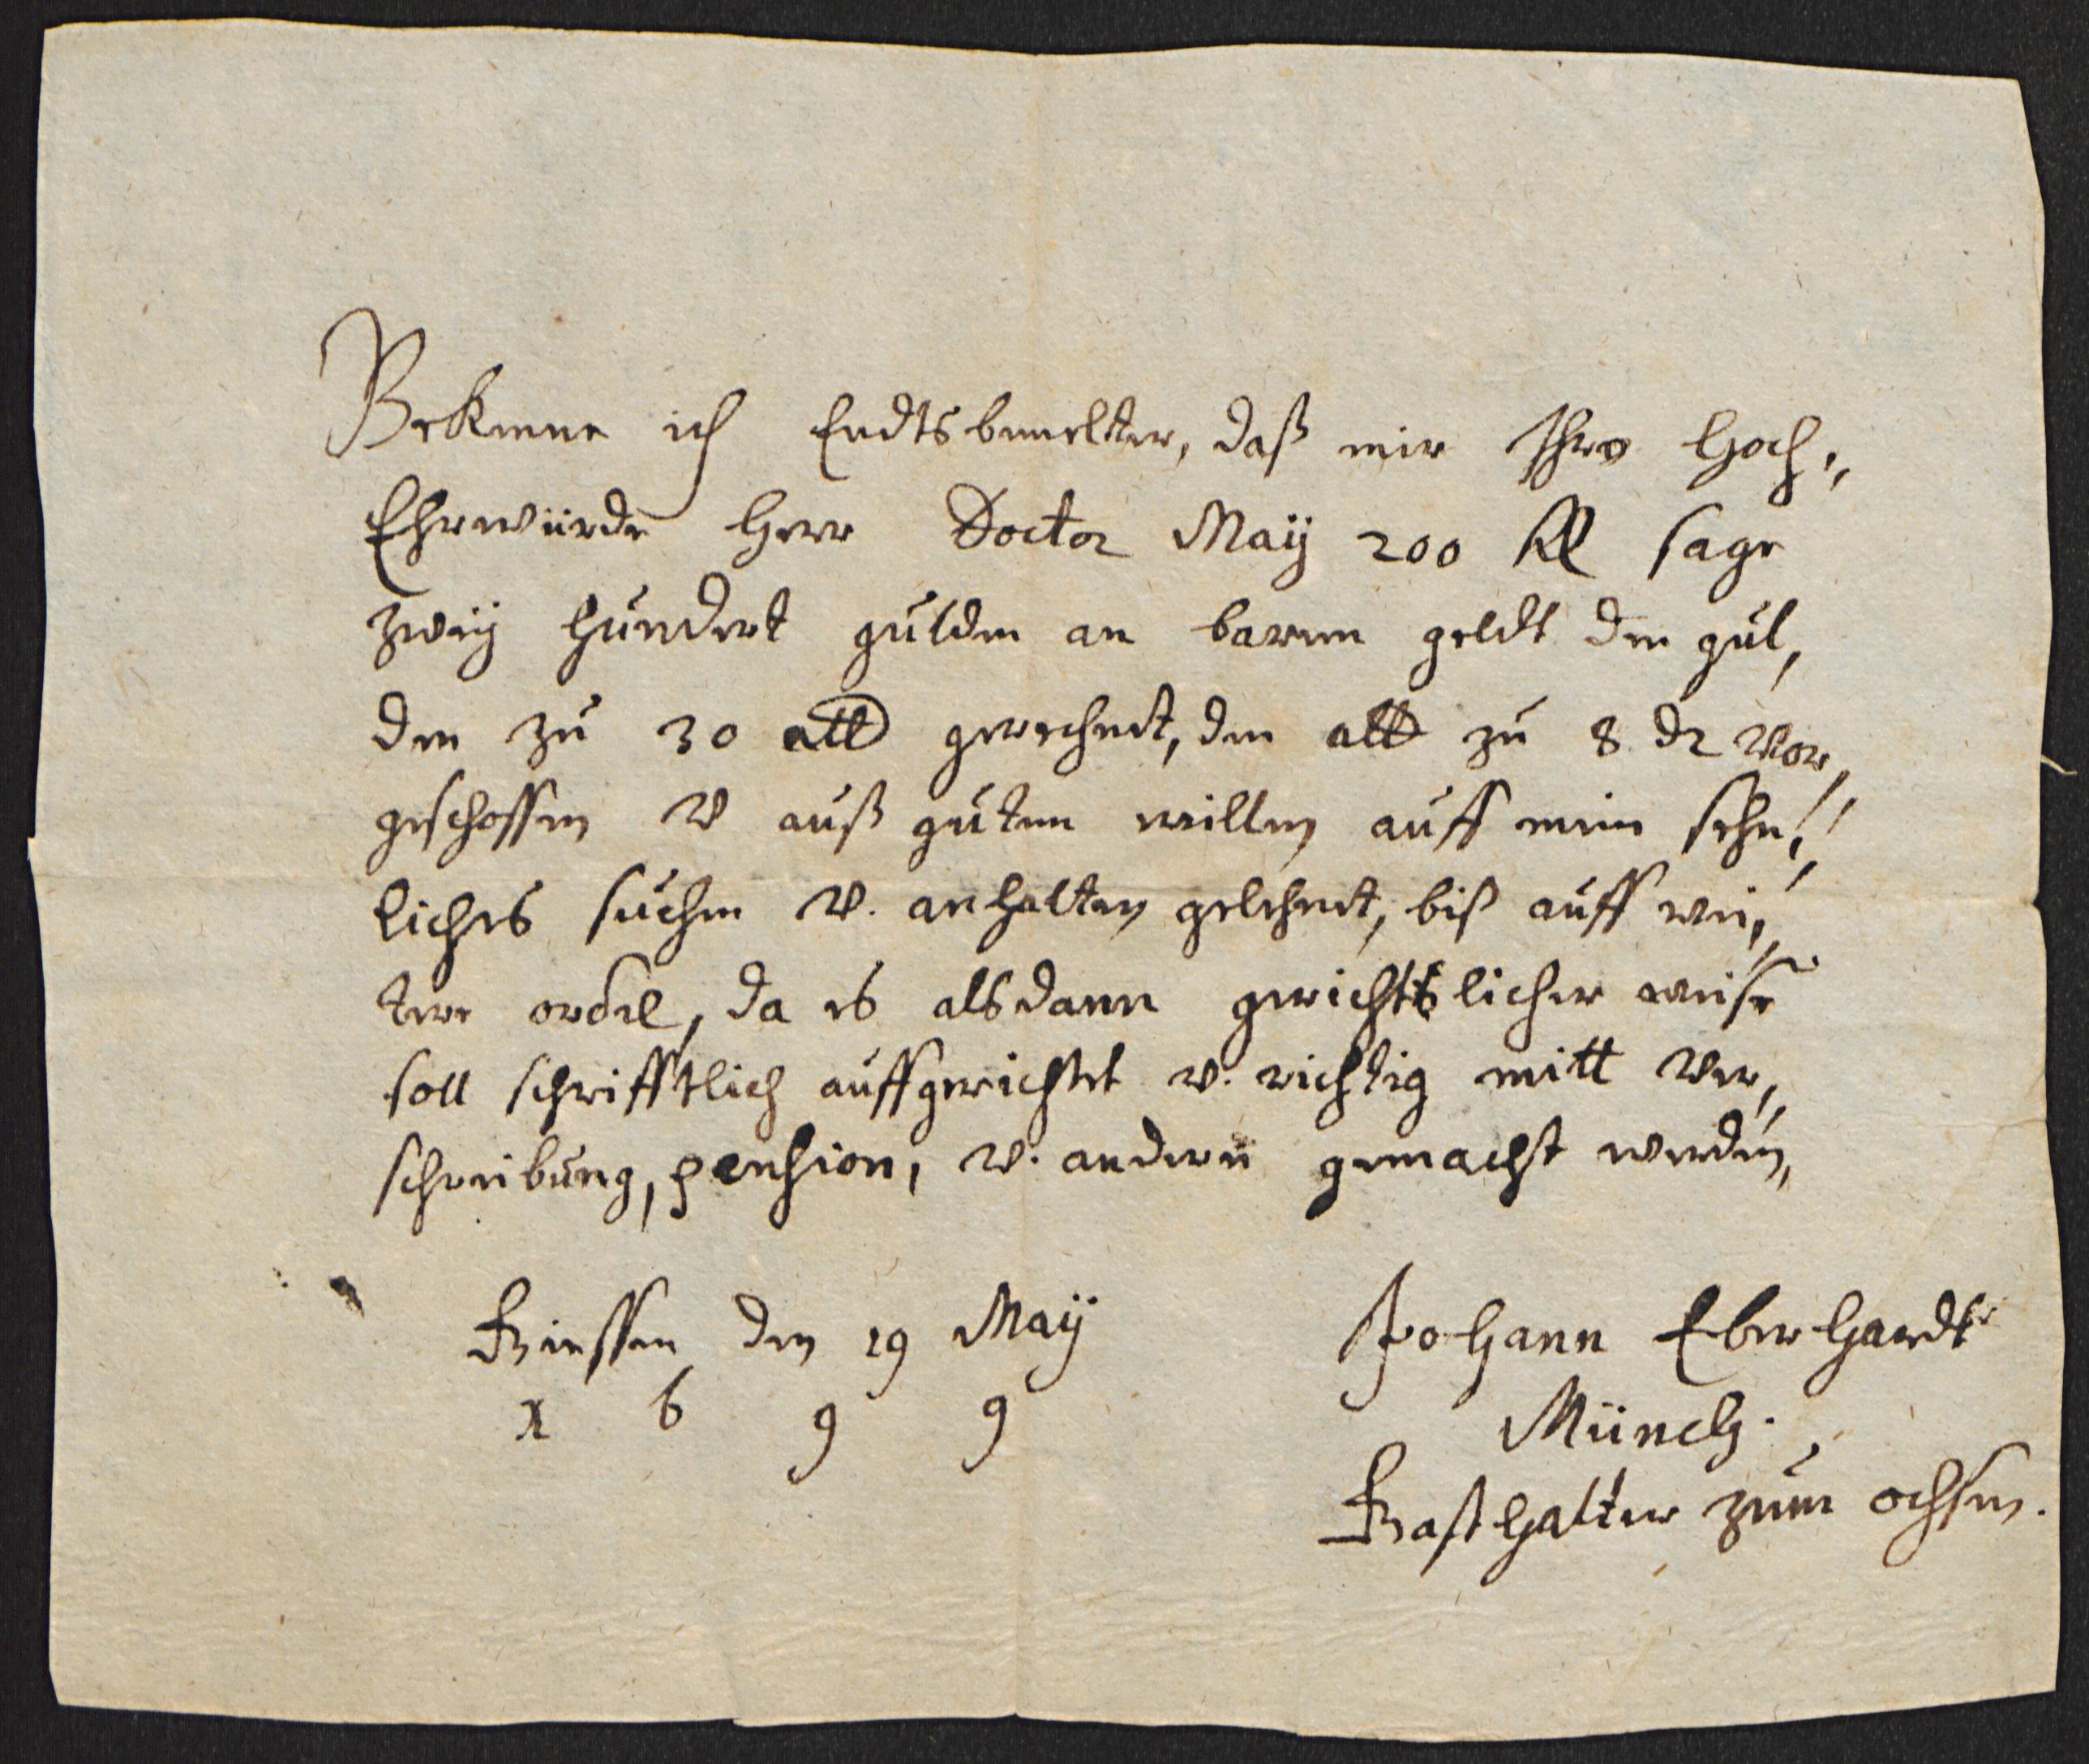 Bekenne ich Endtsbemelter, daß mir Ihro Hoch„
Ehrwürde Herr Doctor Maÿ 200 fl sage
zweÿ hundert gulden an barem geldt den gul,
den zu 30 alb gerechnet, den alb zu 8 ₰ vor,
geschossen v auß gutem willen auff mein sehn„
liches suchen v. anhalten gelehnet, biß auff wei„
tere order, da es alsdann gerichtlicher weise
soll schrifftlich auffgerichtet v. richtig mitt ver„
schreibung, pension, v. anderm gemacht werden,
Giessen den 19 Maÿ
1 6 9 9
Johann Eberhardt
Münch.
Gasthalter zum ochsen.